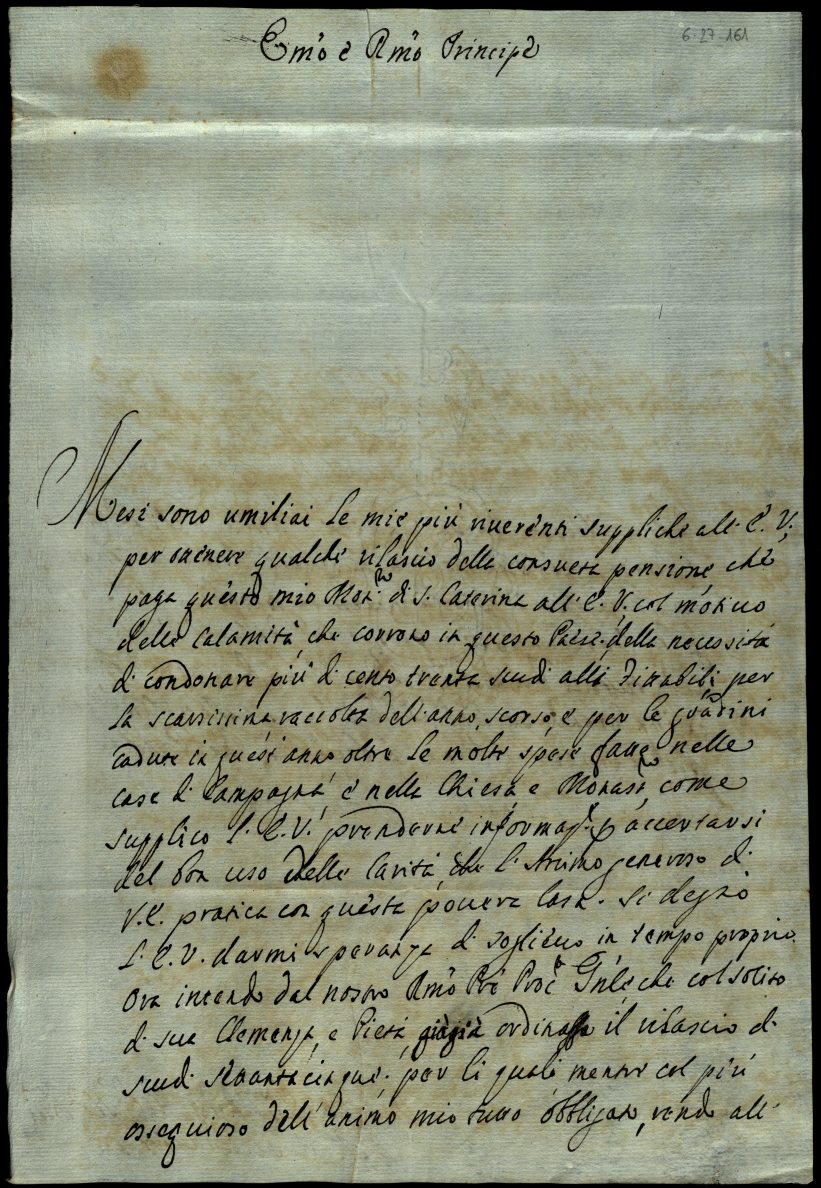 6-27-161
Emo e Rmo Principe
Mesi sono umiliai le mie più riverenti suppliche all'E. V.,
per ottenere qualche rilascio della consueta pensione, che
paga questo mio Monro di S. Caterina all'E. V. col motivo
delle Calamità, che corrono in questo Paese, della necessità
di condonare più di cento trenta scudi alli Fittabili per
la scarsissima raccolta dell'anno scorso, e per le
cadute in quest'anno oltre le molte spese fatte nelle
case di Campagna, e nella Chiesa e Monastro, come
supplico l'E. V. prenderne informaze p accertarsi
del bon uso delle Carità, che l'Animo generoso di
V. E. pratica con questa povera Casa. Si degnò
l'E. V. darmi speranza di sollievo in tempo proprio.
Ora intendo dal nostro Rmo Pre Proc Gnle, che col solito
di sua Clemenza, e Pietà, ordinasse il rilascio di
scudi settantacinque. per li quali mentre col più
ossequioso dell'animo mio tutto obbligato, rendo all'